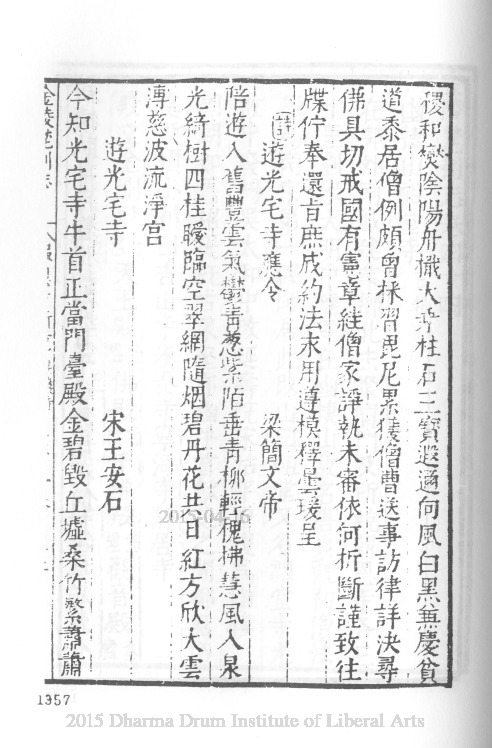 稷和燮陰陽舟檝大乘柱石三寶遐邇向風白黑兼慶貧
道忝居僧例頗曾採習毘尼累獲僧曹送事訪律詳決尋
佛具切戒國有憲章維僧家諍執未審依何折斷謹致往
牒佇奉還旨庶成約法末用遵模釋曇瑗呈
詩 遊光宅寺應令 梁簡文帝
陪遊入舊豐雲氣鬱青葱紫陌垂青柳輕槐拂慧風入泉
光綺樹四桂曖臨空翠網隨烟碧丹花共日紅方欣大雲
溥慈波流淨宫
遊光宅寺 宋王安石
今知光宅寺牛首正當門臺殿金碧毀丘墟桑竹繁蕭蕭
金陵梵刹志
1357
2015-04-16
2015 Dharma Drum Institute of Liberal Arts